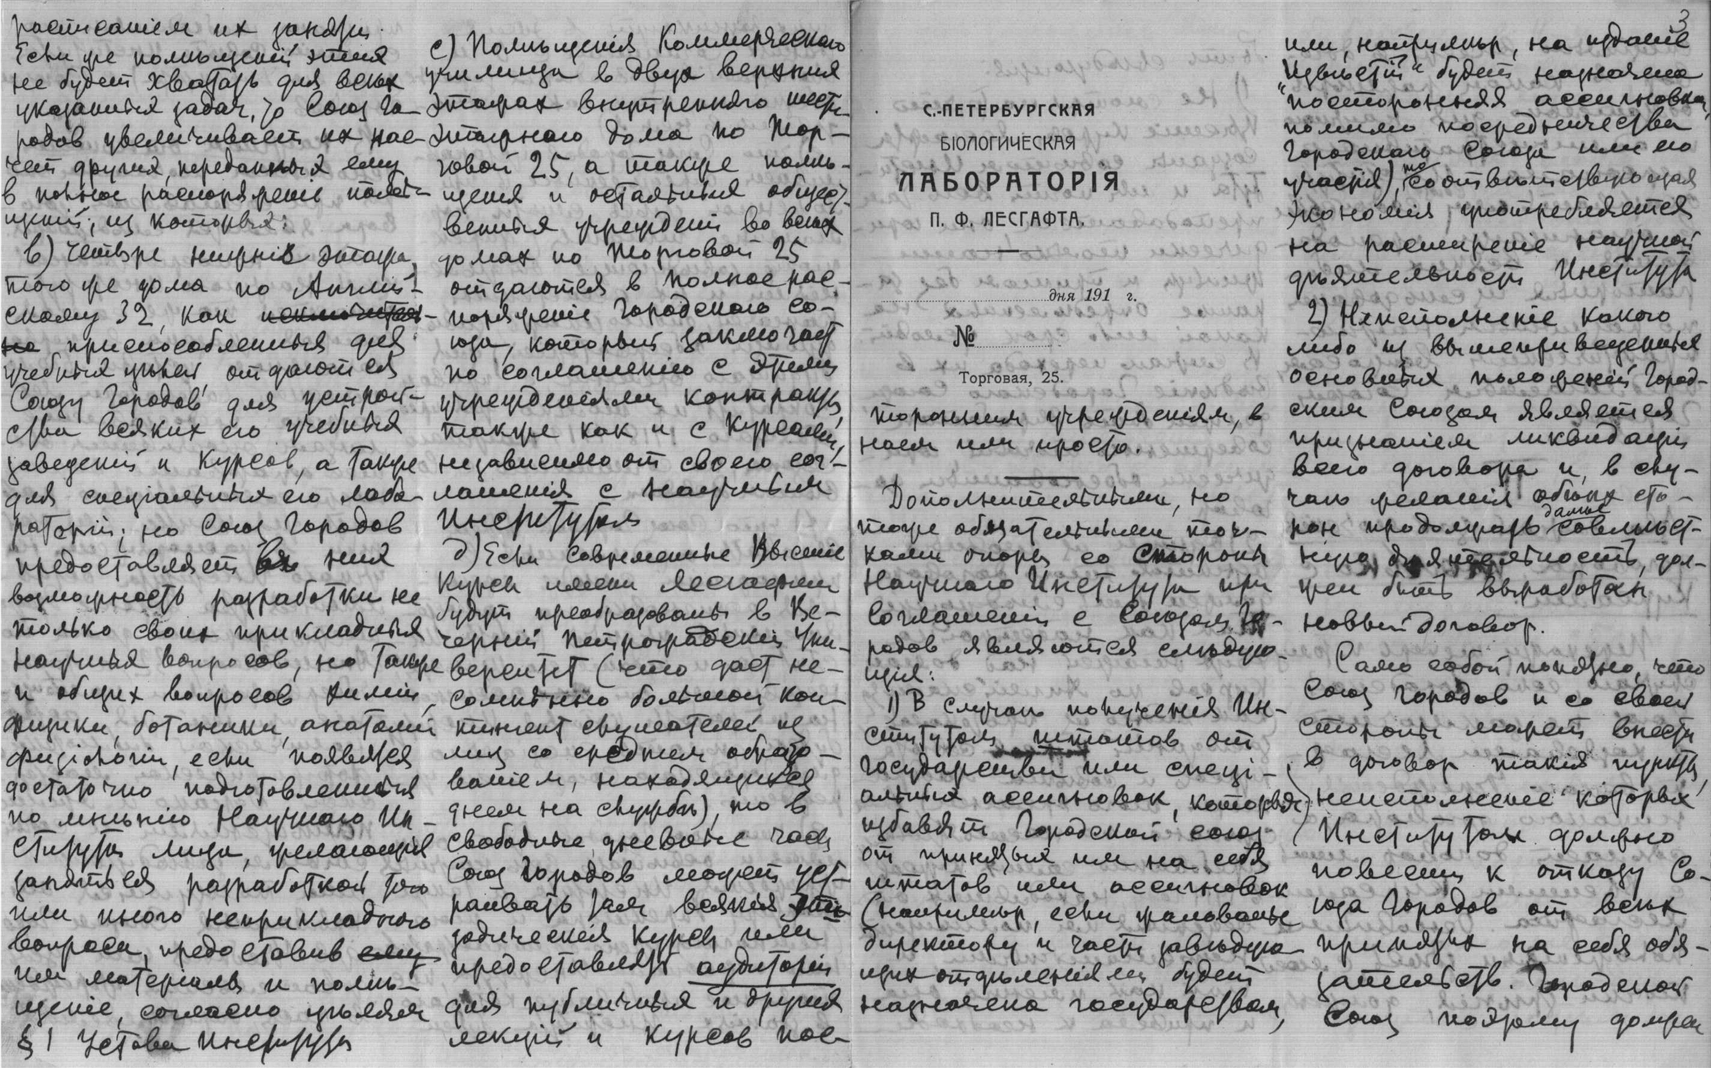 росписаніем их занятій.
Если же помѣщеній этих
не будет хватать для всѣх
указанных задач, то Союз Го-
родов увеличивает их нае-
чет другія, переданныя ему
в полное распоряженіе помѣ-
щеній; из которых:
в) Четыре нижніх этажа
того же дома по Англій-
скому 32, как исключитель-
но приспособленныя для
учебных цѣлей отдаются
Союзу Городов для устрой-
ства всяких его учебных
заведеній и Курсов, а также
для спеціальных его лабо-
раторій; но Союз Городов
предоставляет в них
возможность разработки не
только своих прикладных
научных вопросов, но также
и общих вопросов химіи,
физики, ботаники, анатоміи
физіологіи, если появятся
достаточно подготовленныя
по мнѣнію Научнаго Ин-
ститута лица, желающія
заняться разработкой того
или иного неприкладного
вопроса, предоставив ему
им матеріалы и помѣ-
щеніе, согласно цѣлям
§ 1 Устава Института
с) Помѣщенія Коммерческаго
училища в двух верхних
этажах внутренняго шести
этажнаго дома по Тор-
говой 25, а также помѣ-
щенія и остальных общест-
венных учрежденій во всѣх
домах по Торговой 25
отдаются в полное рас-
поряженіе Городского Со-
юза, который заключает
по соглашенію с этими
учрежденіями контракты,
также как и с Курсами,
независимо от своего сог-
лашенія с Научным
Институтом
д) Если современные Высшіе
Курсы имени Лесгафта
будут преобразованы в Ве-
черній Петроградскій Уни-
верситет (что даст не-
сомнѣнно большой кон-
тингент слушателей из
лиц со средним образо-
ваніем, находящихся
днем на службѣ), то в
свободные дневные часы
Союз Городов может уст-
раивать там всякія эпи-
зодическія курсы или
предоставлять аудиторіи
для публичных и других
лекцій и Курсов пос-
С.-ПЕТЕРБУРГСКАЯ
БІОЛОГИЧЕСКАЯ
ЛАБОРАТОРІЯ
П. Ф. ЛЕСГАФТА.
дня 191 г.
№
Торговая, 25.
торонним учрежденіям, в
наем или просто.
Дополнительными, но
тоже обязательными точ-
ками опоры со стороны
Научнаго Института при
Соглашеніи с Союзом Го-
родов являются слѣдую-
щія:
1) В случаѣ полученія Ин-
ститутом штатов от
государства или спеці-
альных ассигновок, которые
избавят Городской союз
от принятых им на себя
штатов или ассигновок
(например, если жалованье
директору и части завѣдую-
щих отдѣленіями будет
назначено государством,
3
или, например, на изданіе
"Извѣстій" будет назначена
посторонняя ассигновка,
помимо посредничества
Городского Союза или его
участія), то соотвѣтствующая
экономія употребляется
на расширеніе научной
дѣятельности Института
2) Неисполненіе какого
либо из вышеприведенных
основных положеній Город-
ским Союзом является
признаніем ликвидаціи
всего договора и, в слу-
чаѣ желанія обѣих сто-
рон продолжать далѣе совмѣст-
ную дѣятельность, дол-
жен быть выработан
новый договор.
Само собой понятно, что
Союз Городов и со своей
стороны может внести
в договор такія пункты,
неисполненіе которых
Институтом должно
повести к отказу Со-
юза Городов от всѣх
принятых на себя обя-
зательств. Городской
Союз поэтому должен